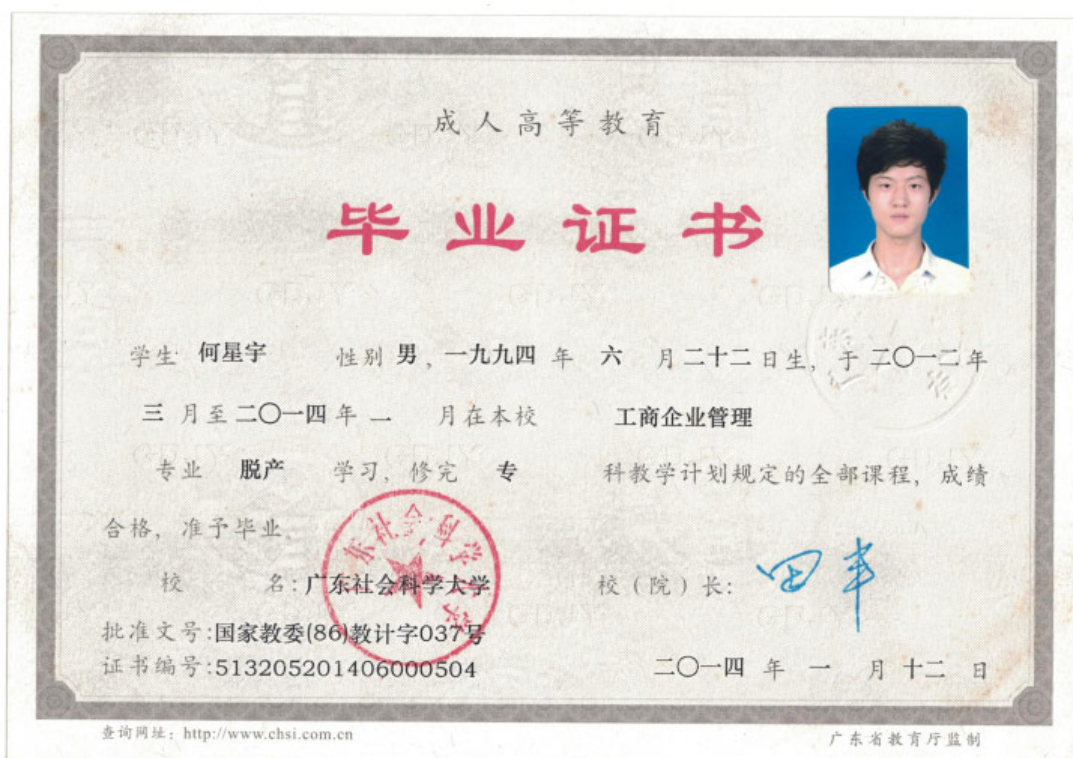 成人高等教育
毕业证书
学生 何星宇 性别 男，一九九四 年 六 月 二十二 日生，于 二〇一二 年
三 月至 二〇一四 年 一 月在本校 工商企业管理
专业 脱产 学习，修完 专 科教学计划规定的全部课程，成绩
合格，准予毕业。
校 名：广东社会科学大学 校（院）长：田丰
批准文号:国家教委(86)教计字037号
证书编号:513205201406000504 二〇一四 年 一 月 十二 日
广东社会科学大学
查询网址：http://www.chsi.com.cn 广东省教育厅监制